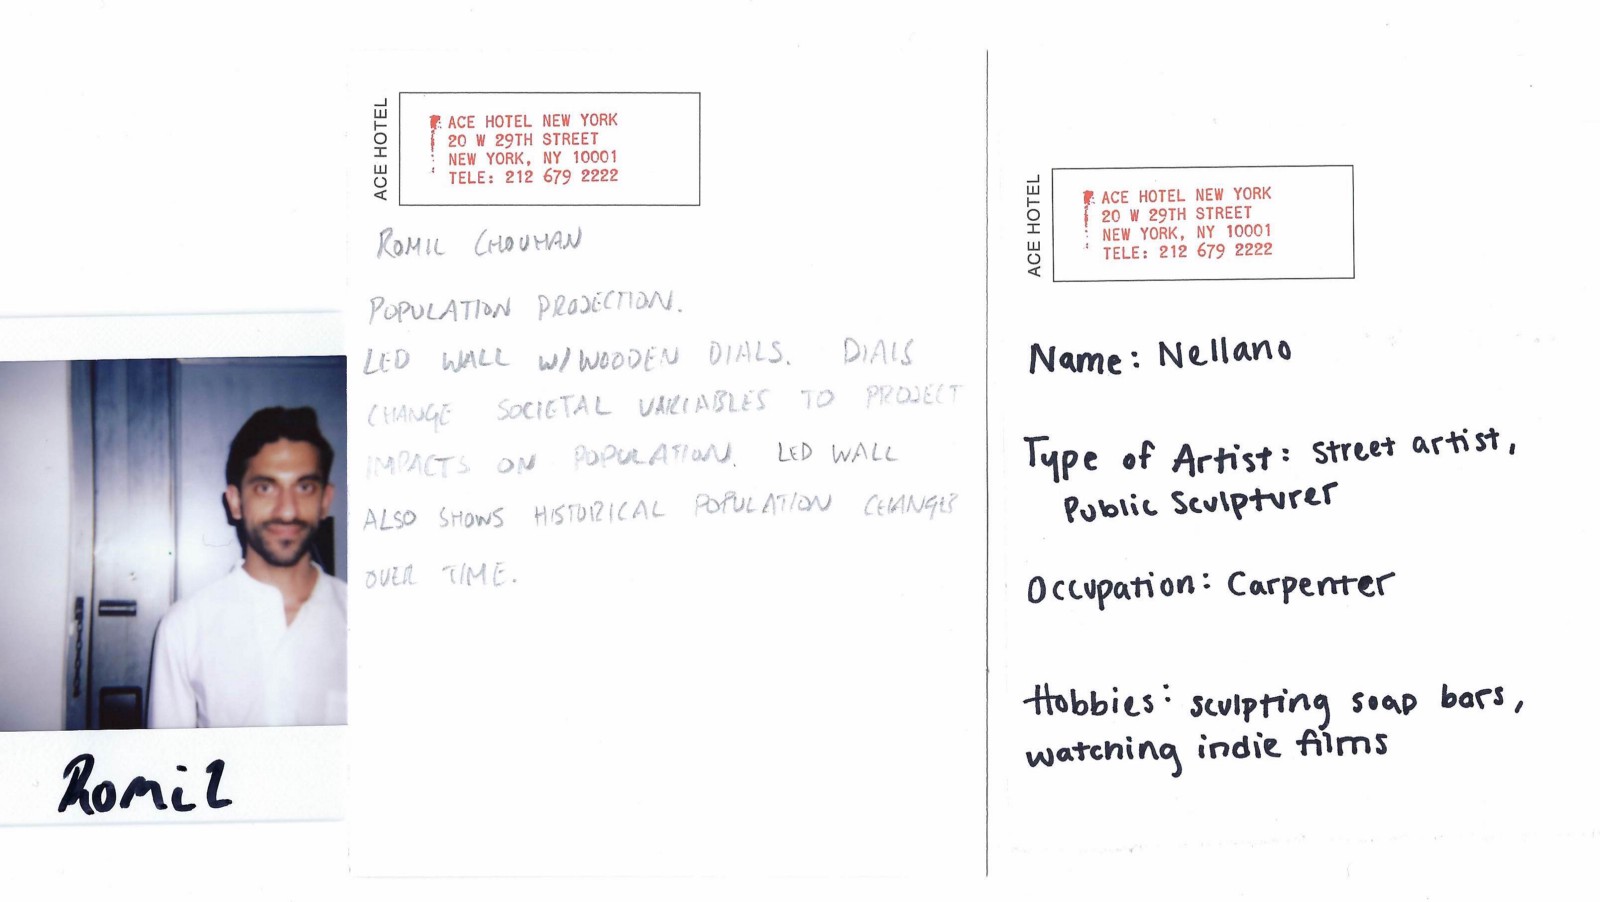 Romil
ACE HOTEL
ACE HOTEL NEW YORK
20 W 29TH STREET
NEW YORK, NY 10001
TELE: 212 679 2222
ROMIL CHOUHAN
POPULATION PROJECTION.
LED WALL W/WOODEN DIALS. DIALS
CHANGE SOCIETAL VARIABLES TO PROJECT
IMPACTS ON POPULATION. LED WALL
ALSO SHOWS HISTORICAL POPULATION CHANGES
OVER TIME.
ACE HOTEL
ACE HOTEL NEW YORK
20 W 29TH STREET
NEW YORK, NY 10001
TELE: 212 679 2222
Name: Nellano
Type of Artist: Street artist,
Public Sculpturer
Occupation: Carpenter
Hobbies: sculpting soap bars,
watching indie films